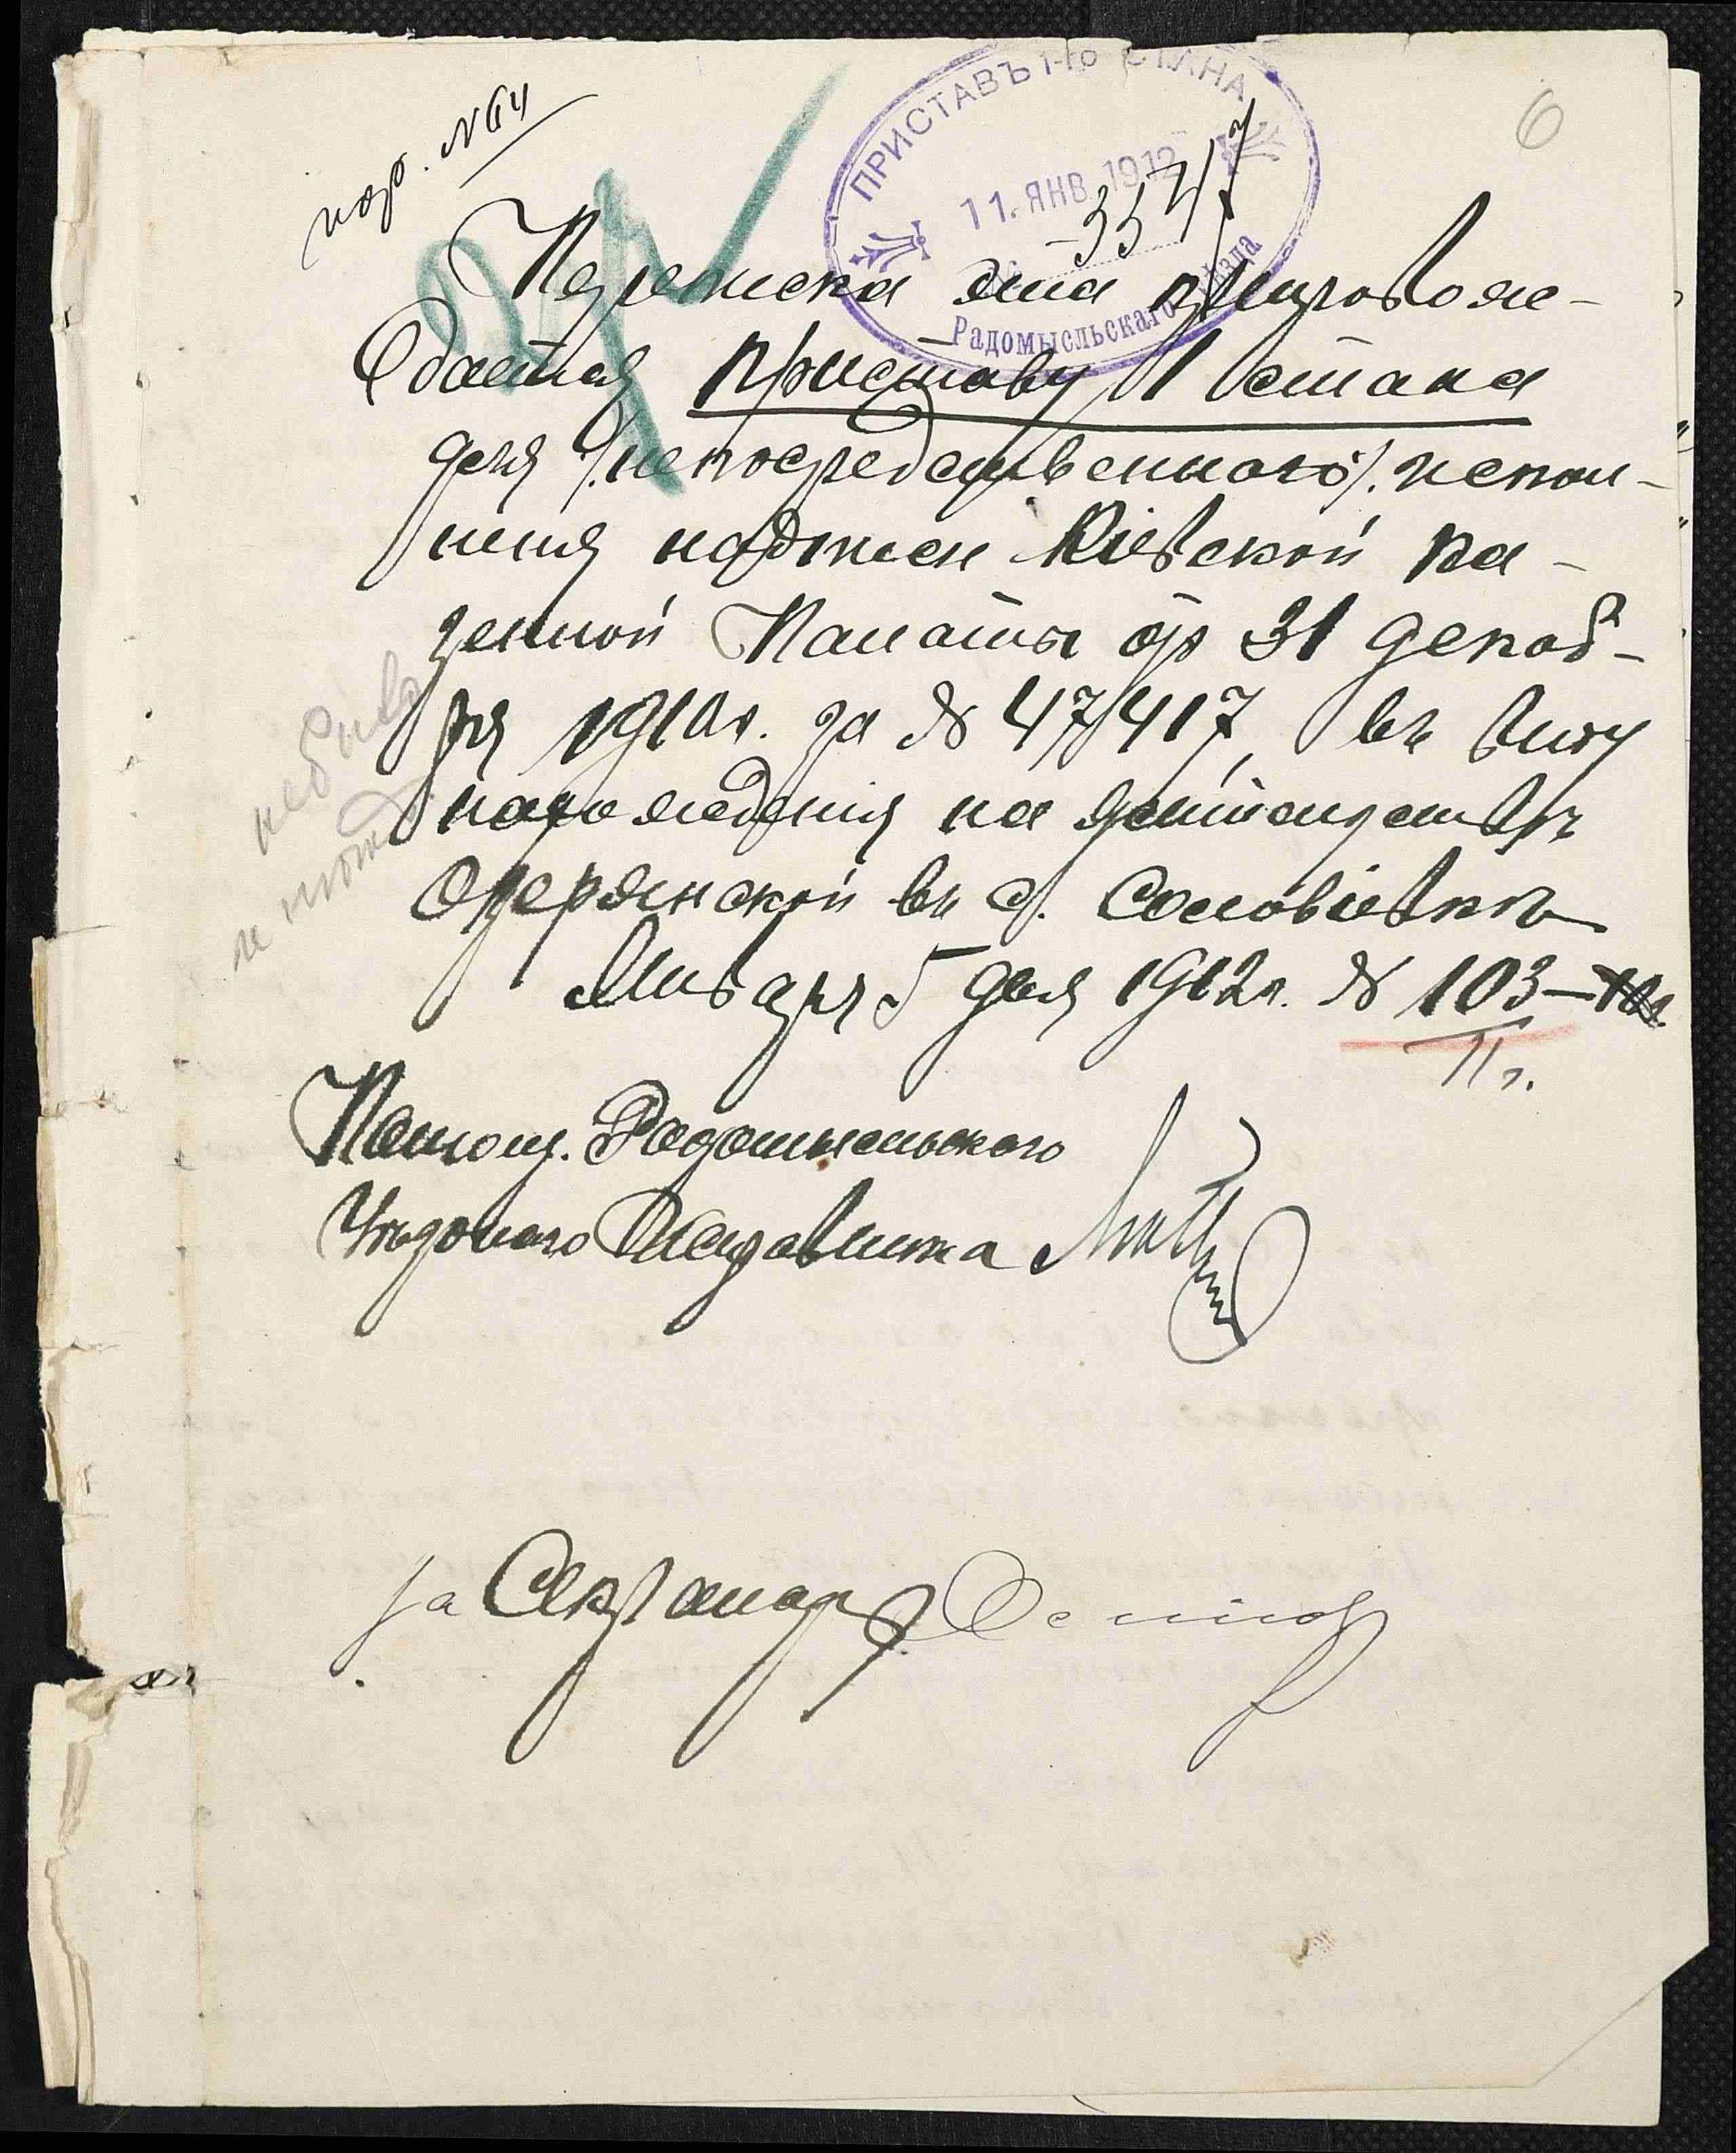 пор. № 64
6
ПРИСТАВЪ 1-го СТАНА
11. ЯНВ 1912
Радомысльскаго уѣзда
Переписка эта препровож-
дается Приставу 1 стана
для /:непосредственного:/ испол-
нения надписи Кіевской Ка-
зенной Палаты от 31 декаб-
ря 1911 г. за № 47417, въ виду
нахождения на жительстве
Озерянской въ с. Соловіевке
Января 5 дня 1912 г. № 103
Помощ. Радомысльского
Уездного Исправника
За Секретаря